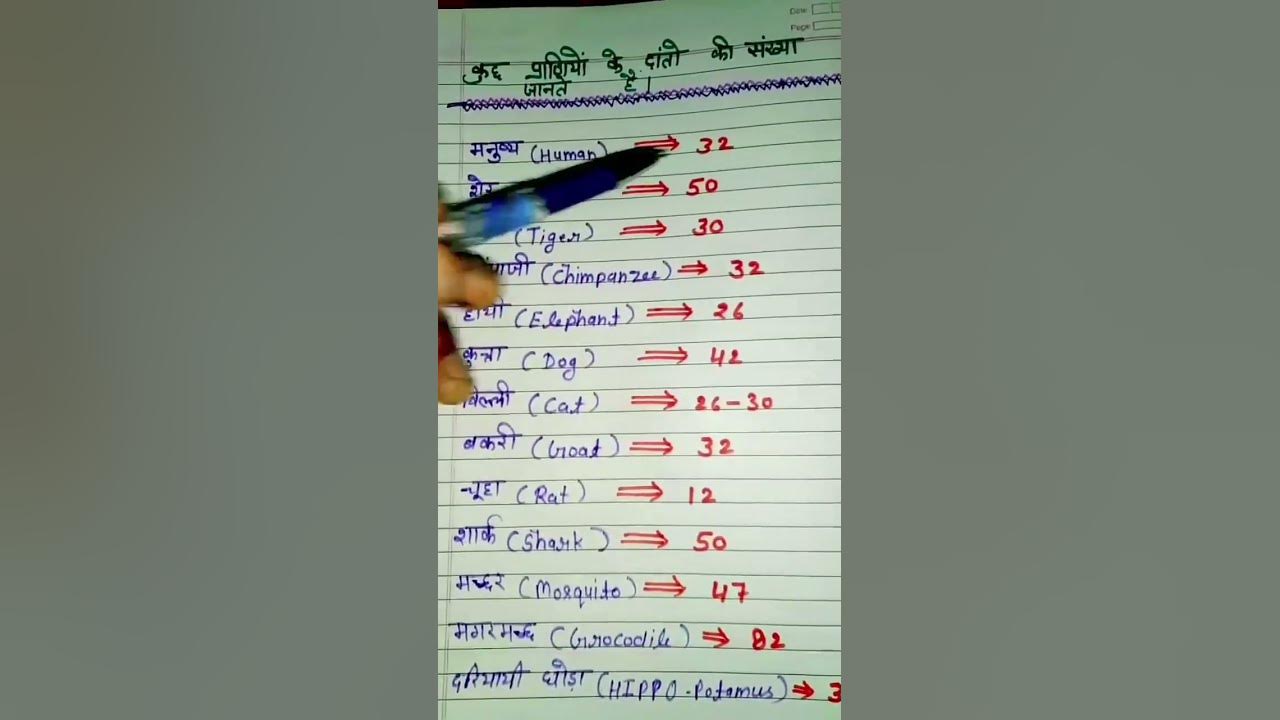 Date
Page
कुछ प्राणियों के दांतो की संख्या
जानते है।
मनुष्य (Human) ⟹ 32
शेर ⟹ 50
(Tiger) ⟹ 30
(Chimpanzee) ⟹ 32
हाथी (Elephant) ⟹ 26
कुत्ता (Dog) ⟹ 42
बिल्ली (Cat) ⟹ 26-30
बकरी (Goat) ⟹ 32
चूहा (Rat) ⟹ 12
शार्क (Shark) ⟹ 50
मच्छर (Mosquito) ⟹ 47
मगरमच्छ (Crocodile) ⟹ 82
दरियायी घोड़ा (HIPPO-Potamus) ⟹ 3